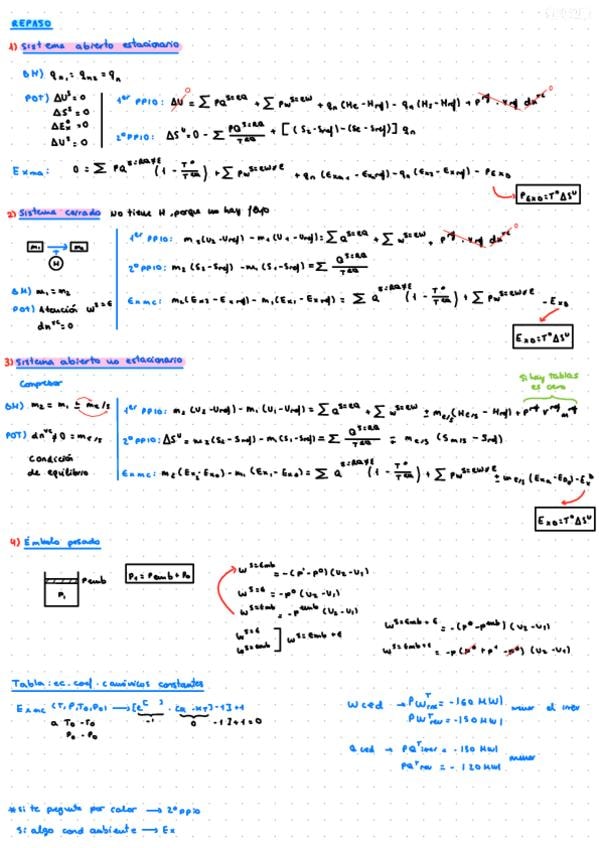 REPASO
1) Sistema abierto estacionario
BM) qn1 = qn2 = qn
POT) ΔU^S = 0
ΔS^S = 0
ΔEx^S = 0
ΔU^S = 0
1er PPIO: ΔU^0 = Σ PQ^S=RQ + Σ PW^S=RW + qn (He - Href) - qn (Hs - Href) + p^ref · Vref dn^vc 0
2º PPIO: ΔS^U = 0 - Σ PQ^S=RQ / T^RQ + [(Ss - Sref) - (Se - Sref)] qn
Exma: 0 = Σ PQ^S=RQ≠E (1 - T°/T^RQ) + Σ PW^S=RW≠E + qn (Exm1 - Exref) - qn (Ex2 - Exref) - P_EXD
P_EXD = T° ΔS^U
2) Sistema cerrado No tiene H, porque no hay flujo
M1 → M2
H
BM) m1 = m2
POT) Atención W^S=E
dn^vc = 0
1er PPIO: m2 (U2 - Uref) - m1 (U1 - Uref) = Σ Q^S=RQ + Σ W^S=RW + p^ref · Vref dn^vc 0
2º PPIO: m2 (S2 - Sref) - m1 (S1 - Sref) = Σ Q^S=RQ / T^RQ
Exmc: m2 (Ex2 - Exref) - m1 (Ex1 - Exref) = Σ Q^S=RQ≠E (1 - T°/T^RQ) + Σ PW^S=RW≠E - ExD
ExD = T° ΔS^U
3) Sistema abierto no estacionario
Si hay tablas
es cero
BM) m2 = m1 ± me/s
POT) dn^vc ≠ 0 = me/s
Condición
de equilibrio
1er PPIO: m2 (U2 - Uref) - m1 (U1 - Uref) = Σ Q^S=RQ + Σ W^S=RW ± me/s (He/s - Href) + p^ref V^ref m^ref
2º PPIO: ΔS^U = m2 (S2 - Sref) - m1 (S1 - Sref) = Σ Q^S=RQ / T^RQ ∓ me/s (Sm/s - Sref)
Exmc: m2 (Ex2 - Ex0) - m1 (Ex1 - Ex0) = Σ Q^S=RQ≠E (1 - T°/T^RQ) + Σ PW^S=RW≠E ± me/s (Exa - Ex0) - Ex^D
ExD = T° ΔS^U
4) Émbolo pesado
Pemb
P1
P1 = Pemb + P0
W^S=emb = -(p¹ - p⁰) (U2 - U1)
W^S=E = -p⁰ (U2 - U1)
W^S=emb = -p^emb (U2 - U1)
W^S=E
W^S=emb ] W^S=emb + E
W^S=emb+E = -(p⁰ - p^emb) (U2 - U1)
W^S=emb+E = -p(p⁰ + p¹ - p⁰) (U2 - U1)
Tabla: ec. coef. canónicos constantes
Exmc (T, P, T0, P0)
a T0 - T0
P0 - P0
-1] + 1 = 0
W ced → = -160 MW
= -150 MW
menor el irrev
Q ced → = -130 MW
= -120 MW
menor
* si te pregunta por calor → 2º PPIO
Si algo cond ambiente → Ex